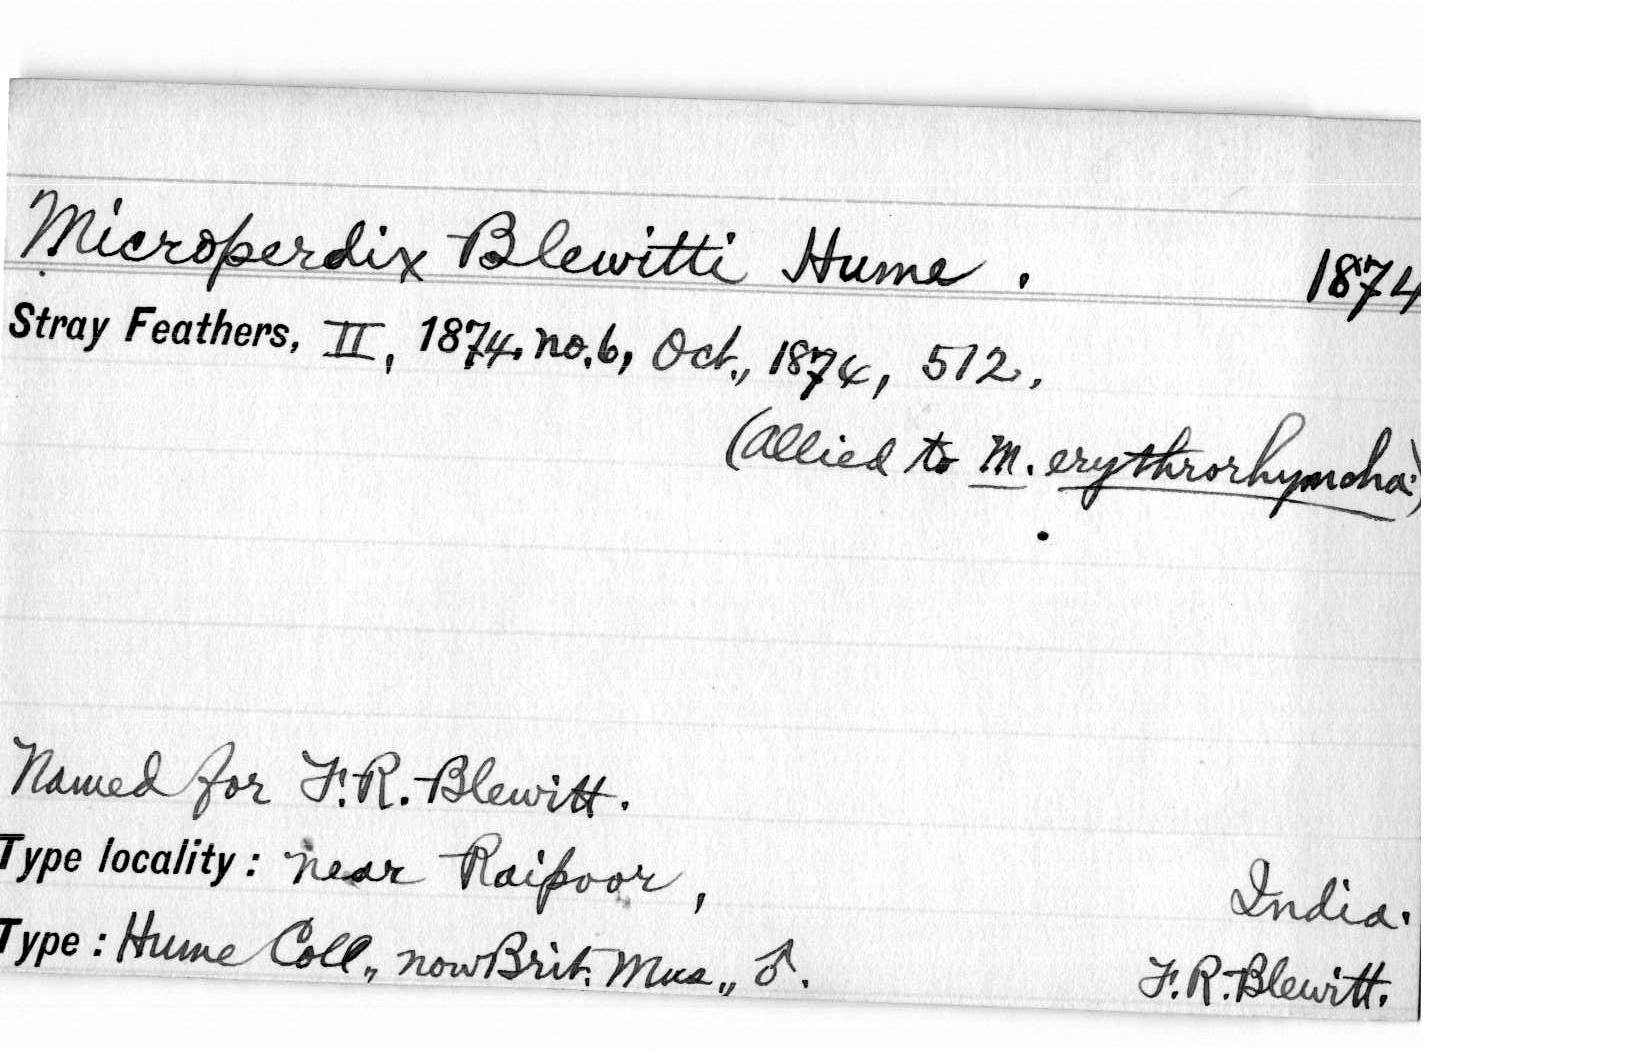 Microperdix Blewitti Hume. 1874
Stray Feathers, II, 1874, no. 6, Oct., 1874, 512.
(allied to M. erythrorhyncha.)
Named for F. R. Blewitt.
Type locality: near Raipoor, India.
Type: Hume Coll., now Brit. Mus., ♂. F. R. Blewitt.